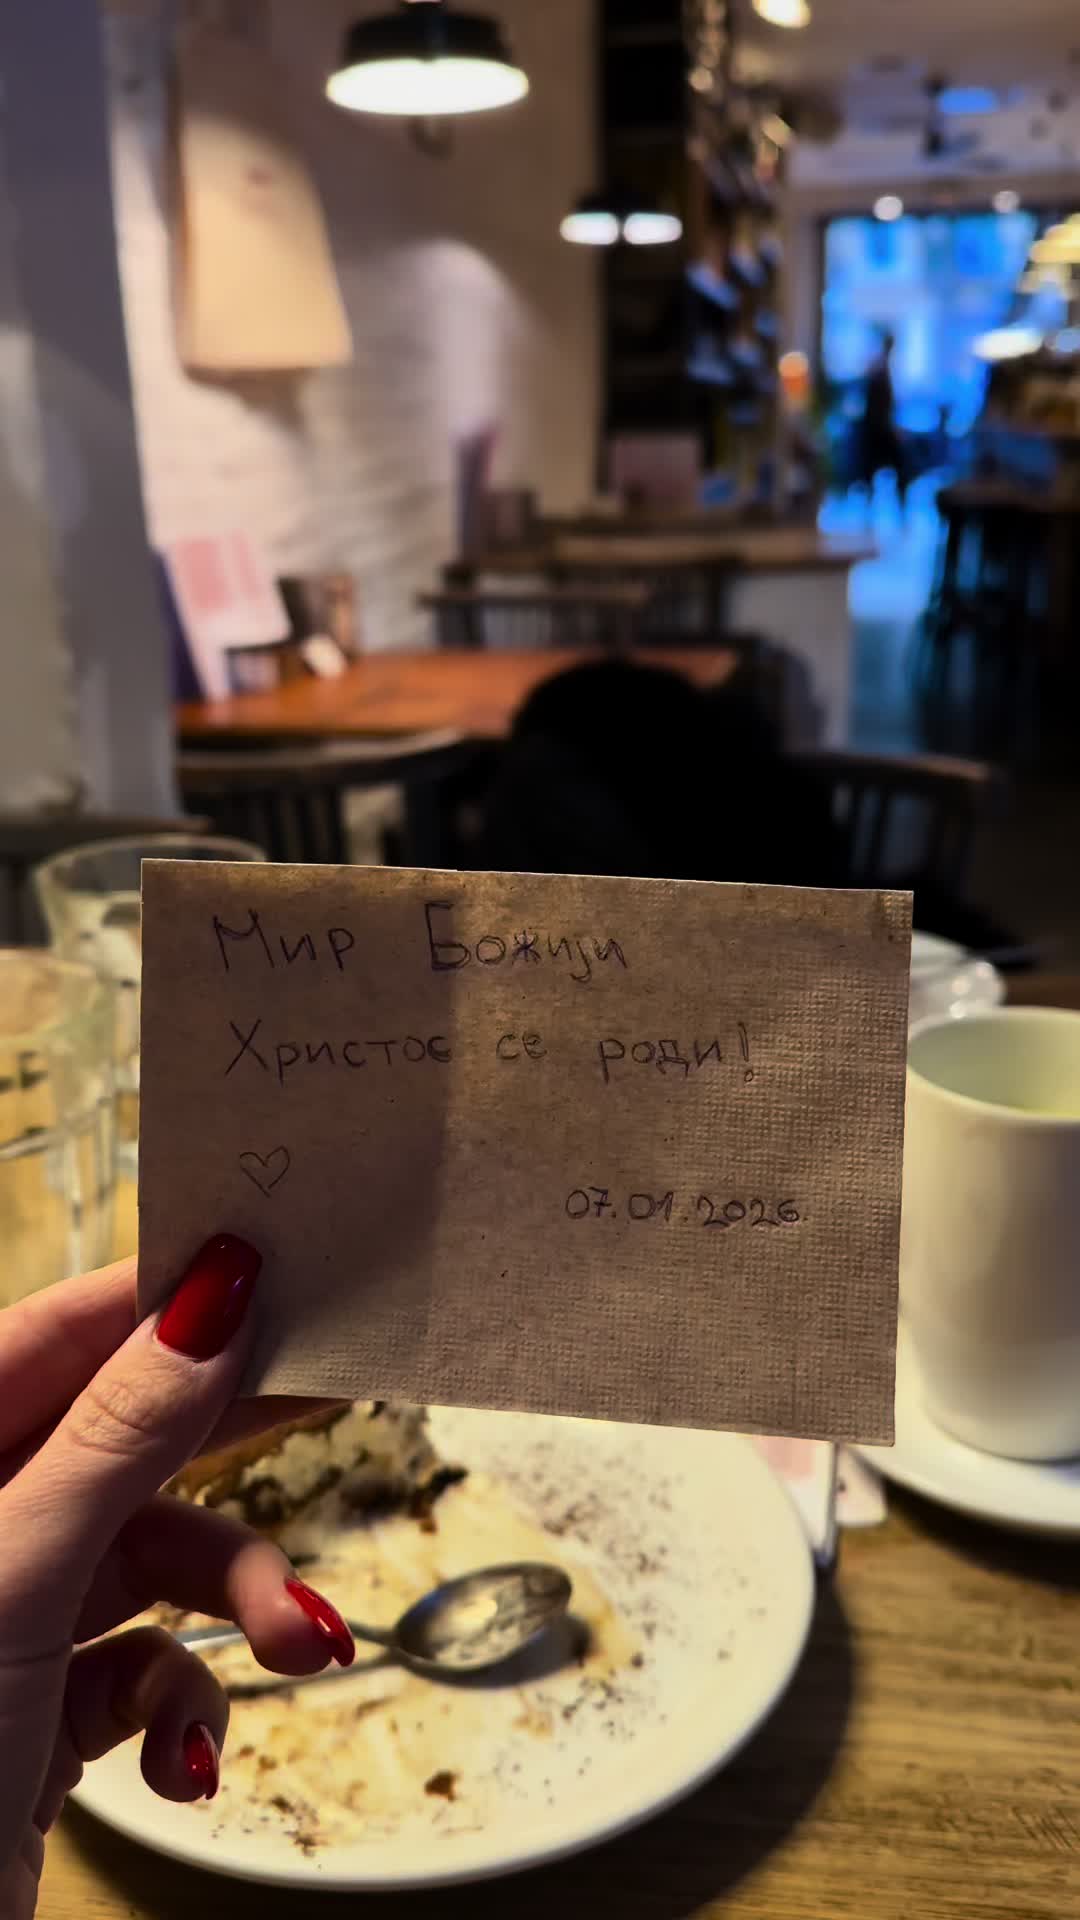 Мир Божији
Христос се роди!
♡
07.01.2026.